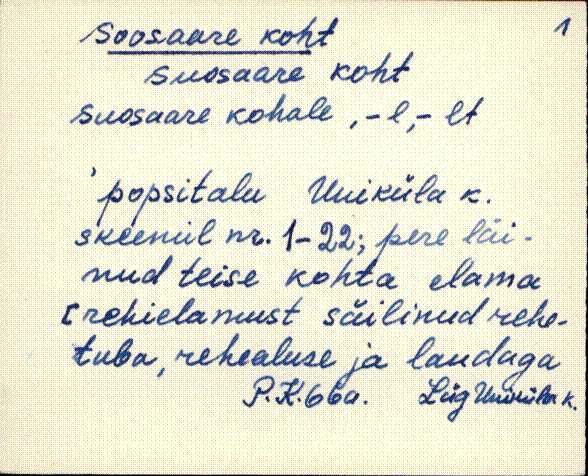 Soosaare koht 1
suosaare koht
suosaare kohale, -l, -lt
'popsitalu Uniküla k.
skeemil nr. 1-22; pere läi-
nud teise kohta elama
[rehielamust säilinud rehe-
tuba, rehealuse ja laudaga
P.K. 66a. Lüg Uniküla k.